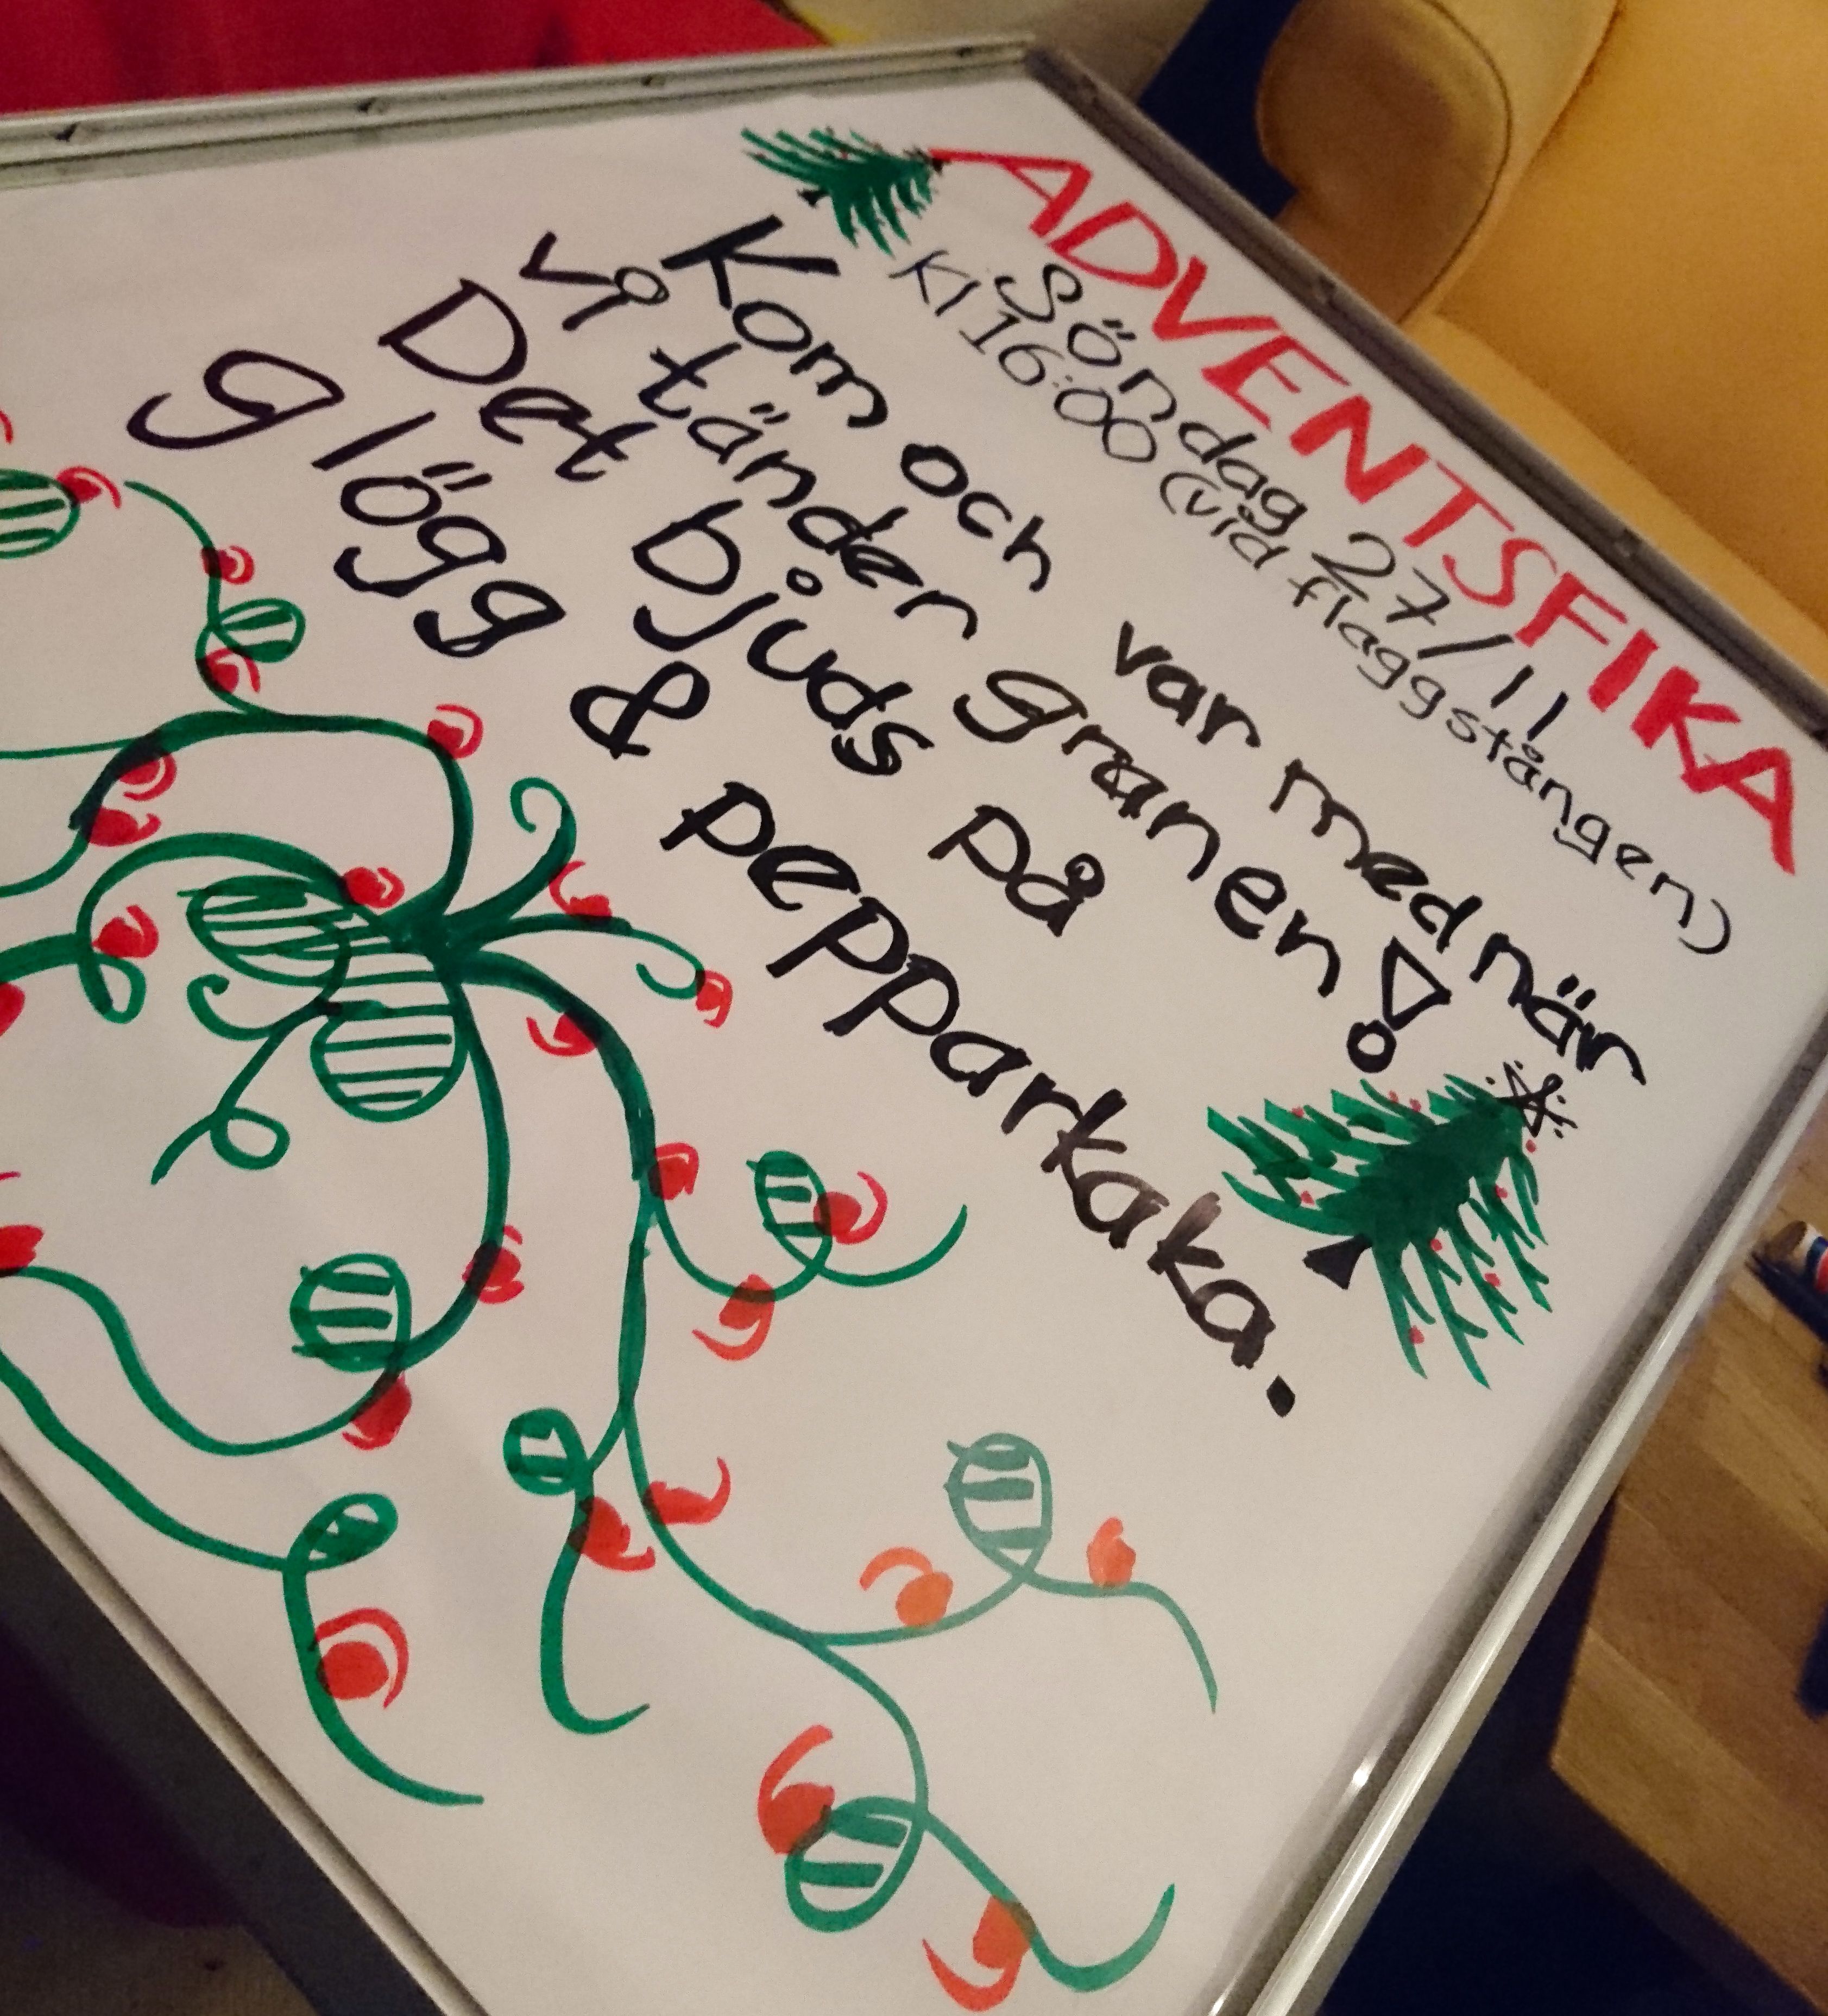 ADVENTSFIKA
Söndag 27/11
Kl 16:00 (vid flaggstången)
Kom och var med när
vi tänder granen!
Det bjuds på
glögg & pepparkaka.